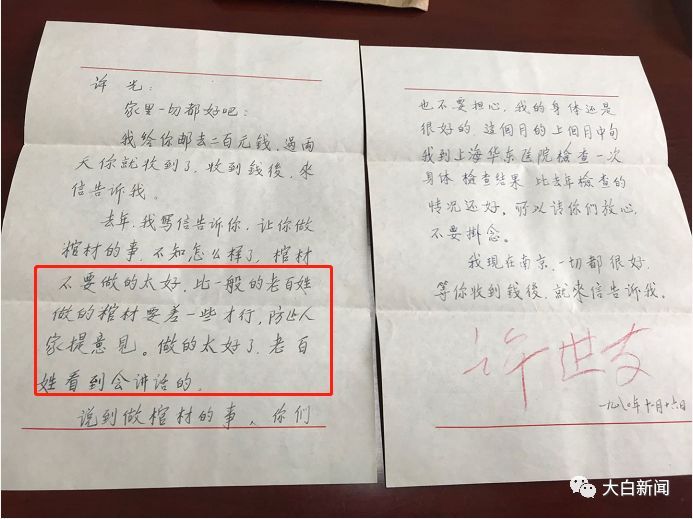 许光：
家里一切都好吧：
我给你邮去二百元钱，过两
天你就收到了，收到钱後，来
信告诉我。
去年，我写信告诉你，让你做
棺材的事，不知怎么样了，棺材
不要做的太好，比一般的老百姓
做的棺材要差一些才行，防止人
家提意见。做的太好了，老百
姓看到会讲话的。
说到做棺材的事，你们
也不要担心，我的身体还是
很好的，這個月的上個月中旬
我到上海华东医院检查一次
身体，检查结果，比去年检查的
情况还好。所以请你们放心，
不要掛念。
我现在南京，一切都很好，
等你收到钱後，就来信告诉我。
许世友
一九八〇年十月十六日
大白新闻